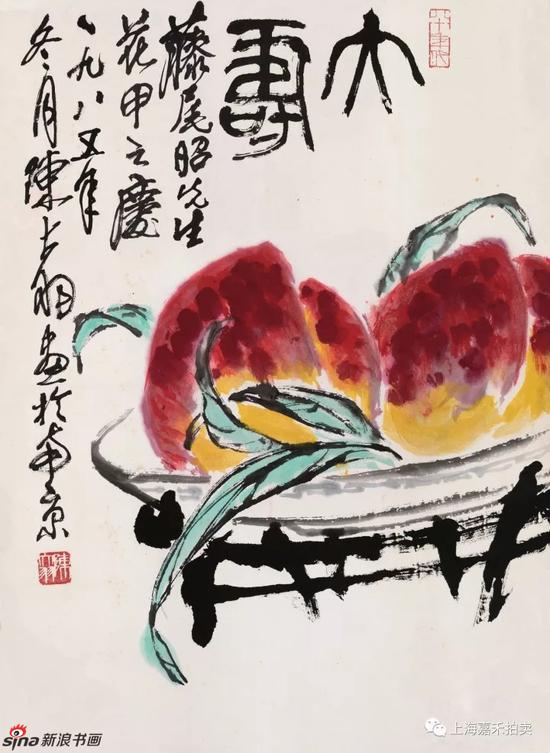 大壽
藤尾昭先生
花甲之慶
一九八五年
冬月陳大羽畫於南京
sina新浪书画
上海嘉禾拍卖